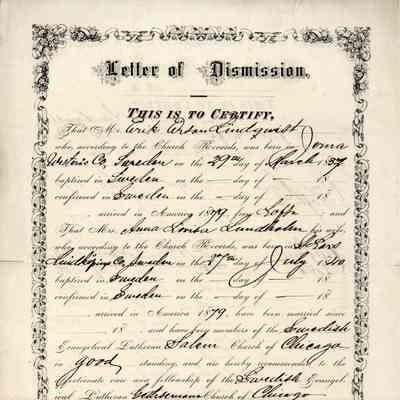 Letter of Dismission,
THIS IS TO CERTIFY,
That Mr. Erik Ersan Lindqvist
who according to the Church Records, was born in
Co, Sweden on the 29th day of March 1837
baptized in Sweden on the — day of — 18
confirmed in Sweden on the — day of — 18
arrived in America 1879 from and
That Mrs. Anna Lovisa Lundholm his wife,
who according to the Church Records, was born in
Linköping Co, Sweden on the 27th day of July 1840
baptized in Sweden on the — day of — 18
confirmed in Sweden on the — day of — 18
arrived in America 1879, have been married since
18 and are members of the Swedish
Evangelical Lutheran Salem Church of Chicago
in good standing, and are hereby recommended to the
affectionate care and fellowship of the Swedish Evangel-
ical Lutheran Church of Chicago